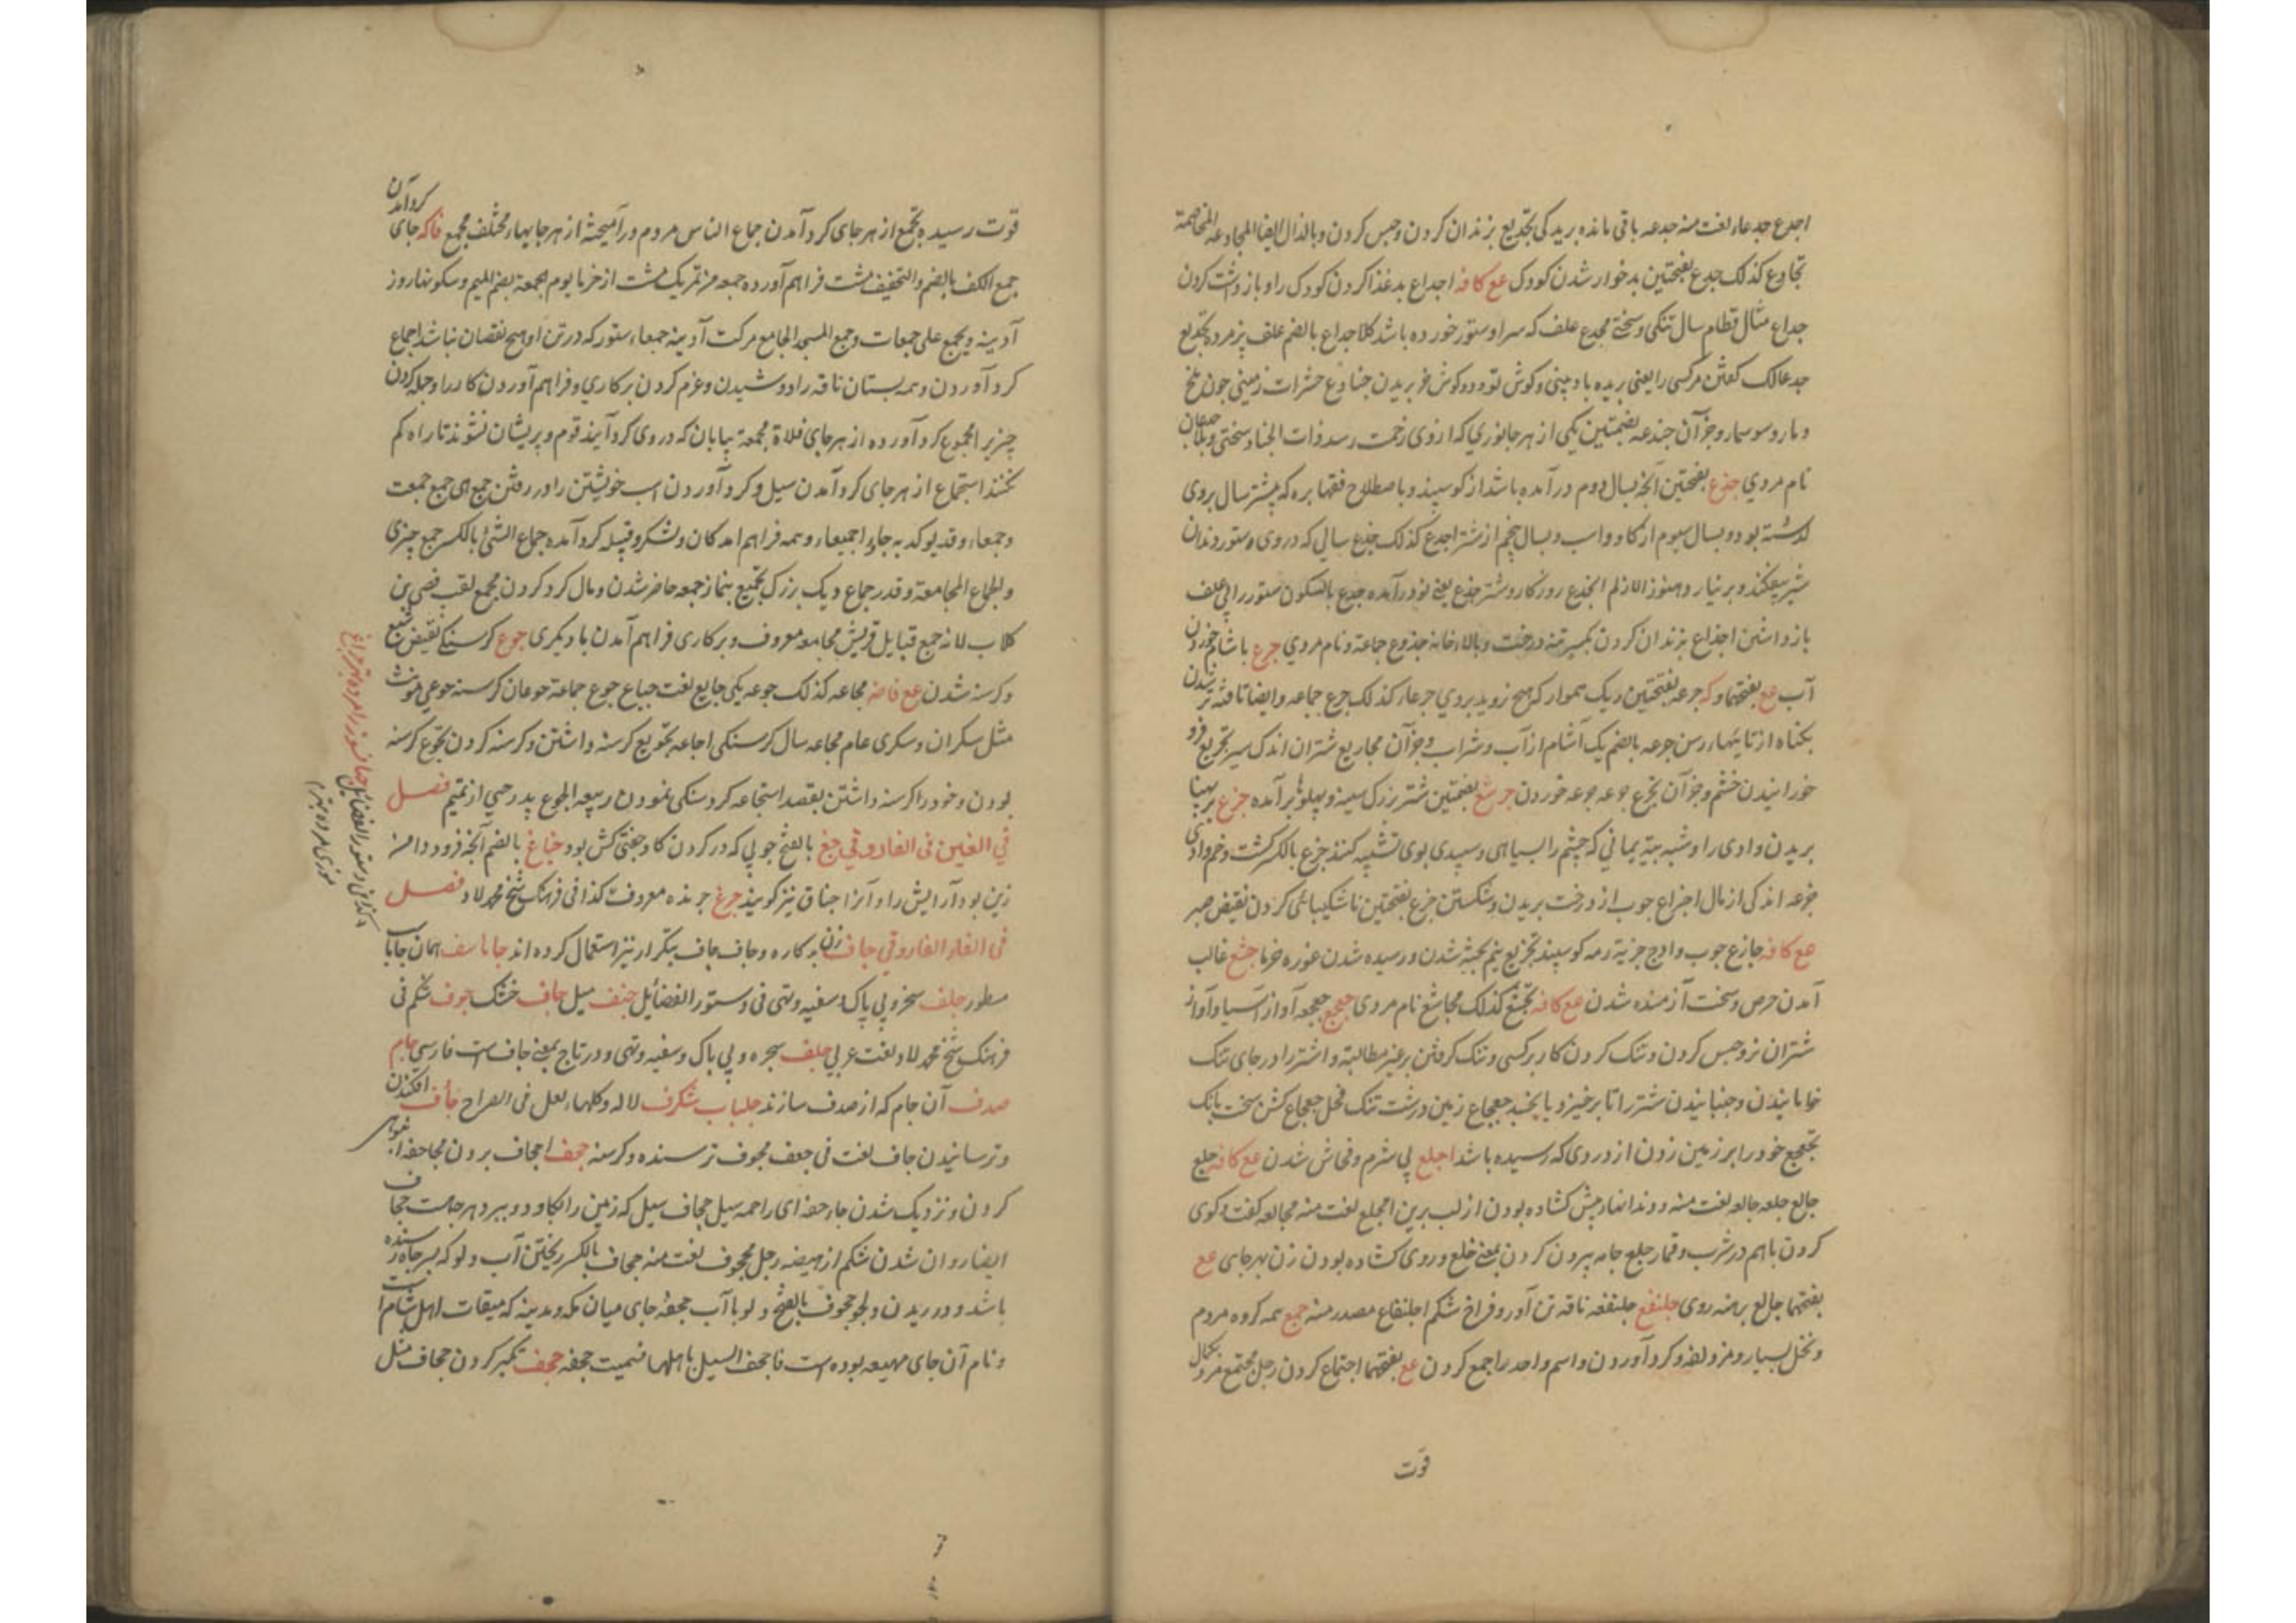 اجدع جدعاء لغت منه جدعه باقی مانده بریدکی تجدیع بزندان کردن وحبس کردن وبالذال ایضا المجادعه المخاصمة
تجادع کذلک جدع بفتحتین بدخوار شدن کودک عع کافه اجداع بدغذا کردن کودک را و باز داشت کردن
جداع مثال قطام سال تنکی و سختی مجدع علف که سر او ستور خورده باشد کلا جداع بالضم علف پژمرده تجدیع
جدعالک کفتن مرکسی را یعنی بریده باد بینی وکوش تو ودو کوش خر بریدن جنادع حشرات زمینی جون ملخ
ومار وسوسمار وجز آن جندعه بضمتین یکی از هر جانوری که از وی زحمت رسد ذات الجنادع سختی وبلا
نام مردی جذع بفتحتین آنجه بسال دوم در آمده باشد از کوسپند وباصطلاح فقها بره که بیشتر سال بروی
کذشته بود وبسال سیوم از کاو واسب وبسال پنجم از شتر اجذع کذلک جذع سالی که در وی ستور دندان
شیر بیفکند وبر نیارد هنوز الازلم الجذع روزکار وشتر جذع یعنی نو درآمده جذع بالسکون ستور را بی علف
باز داشتن اجذاع بزندان کردن بکسر تنه درخت وبالاء خانه جذوع جماعة ونام مردی جرع باشام خوردن
آب عع بفتحها وکه جرعه بفتحتین ریک هموار که هیچ نروید بروی جرعاء کذلک جرع جماعه وایضا تافته تر شدن
یکتاه از تایهاء رسن جرعه بالضم یک آشام از آب وشراب وجز آن مجاریع شتران اندک شیر تجریع فرو
خورانیدن خشم وجز آن تجرع جرعه جرعه خوردن جرشع بضمتین شتر بزرک سینه وپهلوها برآمده جزع بر پهنا
بریدن وادی را وشبه بیته یمانی که چشم را بسیاهی وسپیدی بوی تشبیه کنند جزع بالکسر کشت وخم وادی
جزعه اندکی از مال اجزاع چوب از درخت بریدن وشکستن جزع بفتحتین ناشکیبائی کردن نقیض صبر
عع کافه جازع چوب وادج جزیة رمه کوسپند تجزیع نیم پخته شدن ورسیده شدن غوره خرما جشع غالب
آمدن حرص وسخت آزمنده شدن عع کافه تجشع کذلک مجاشع نام مردی جعجع جعجعه آواز آسیا وآواز
شتران نر وحبس کردن وتنک کردن کار بر کسی وتنک کرفتن بر غیر مطالبة واشتر را در جای تنک
خوابانیدن وجنبانیدن شتر را تا برخیزد یا بخسپد جعجاع زمین درشت تنک فحل جعجاع کشن سخت بانک
تجعجع خود را بر زمین زدن از دردی که رسیده باشد اجلع بی شرم وفحاش شدن عع کافه جلع
جالع جلعه جالعه لغت منه ودندانهاء پیش کشاده بودن از لب برین اجلع لغت منه مجالعه کفت وکوی
کردن باهم در شرب وقمار جلع جامه بیرون کردن بمعنی خلع وروی کشاده بودن زن بهرجای عع
بفتحها جالع برهنه روی جلنفع جلنفعه ناقه تن آور وفراخ شکم اجلنفاع مصدر منه جمع همه کروه مردم
ونخل بسیار ومزدلفه وکرد آوردن واسم واحد را جمع کردن عع بفتحها اجتماع کردن رجل مجتمع مرد بکمال
قوّت
قوت رسیده تجمع از هر جای کرد آمدن جماع الناس مردم درآمیخته از هر جایها مختلف مجمع فاکه جای کرد آمدن
جمع الکف بالضم والتخفیف مشت فراهم آورده جمعه من تمر یک مشت از خرما یوم الجمعة بضم المیم وسکونها روز
آدینه ویجمع علی جمعات وجمع المسجد الجامع مزکت آدینه جمعاء ستور که در تن او هیچ نقصان نباشد اجماع
کرد آوردن وهمه پستان ناقه را دوشیدن وعزم کردن بر کاری وفراهم آوردن کار را وجمله کردن
چیز را المجموع کرد آورده از هر جای فلاة مجمعة بیابان که در وی کرد آیند قوم وپریشان نشوند تا راه کم
نکنند استجماع از هر جای کرد آمدن سیل وکرد آوردن اسب خویشتن را در رفتن جمیع ای جمع جمعت
وجمعاء وقد یؤکد به جاءوا جمیعا وهمه فراهم آمدکان ولشکر وقبیله کرد آمده جماع الشیء بالکسر جمع چیزی
والجماع المجامعة وقدر جماع دیک بزرک تجمیع بنماز جمعه حاضر شدن ومال کرد کردن مجمع لقب قصی بن
کلاب لانه جمع قبایل قریش مجامعه معروف وبر کاری فراهم آمدن با دیکری جوع کرسنکی نقیض شبع
وکرسنه شدن عع فاضه مجاعه کذلک جوعه یکی جایع لغت جیاع جوع جماعة جوعان کرسنه جوعی مؤنث
مثل سکران وسکری عام مجاعه سال کرسنکی اجاعه تجویع کرسنه داشتن وکرسنه کردن تجوع کرسنه
بودن وخود را کرسنه داشتن بقصد استجاعه کرسنکی نمودن ربیعه الجوع پدر حیی از تمیم فصل
فی الغین فی الفاروقی جغ بالفتح چوبی که در کردن کاو جفتی کش بود جناغ بالضم آنجه فرود دامنه
زین بود آرایش را وآنرا جناق نیز کویند جرغ جرنده معروفت کذا فی فرهنک شیخ محمد لاد فصل
فی الفاء الفاروقی جاف زن بدکاره وجاف جاف بتکرار نیز استعمال کرده اند جاماسف همان جاماسب
مسطور جلف سخره وبی باک وسفیه وتهی فی دستور الفضائل جنف میل جاف خشک جوف شکم فی
فرهنک شیخ محمد لاد ولغت عربی جلف سخره وبی باک وسفیه وتهی ودر تاج بمعنی جاف است فارسی جام
صدف آن جام که از صدف سازند جلباب شکرف لاله وکلهاء لعل فی الصراح جأف افکندن
وترسانیدن جاف لغت فی جعف مجوف ترسنده وکرسنه جحف اجحاف بردن مجاحفه
کردن ونزدیک شدن جاء حفه ای راحمه سیل جحاف سیل که زمین را بکاود وببرد هرجاست جحاف
ایضا روان شدن شکم از هیضه رجل مجحوف لغت منه جحاف بالکسر ریختن آب دلو که بسر جاه رسنده
باشد ودریدن دلو جحوف بالفتح دلو با آب جحفه جای میان مکه ومدینه که میقات اهل شام است
ونام آن جای مهیعه بوده است فاجحف السیل باهلها فسمیت جحفه جخف تکبر کردن جخاف مثل
کذا فی دستور الفضائل